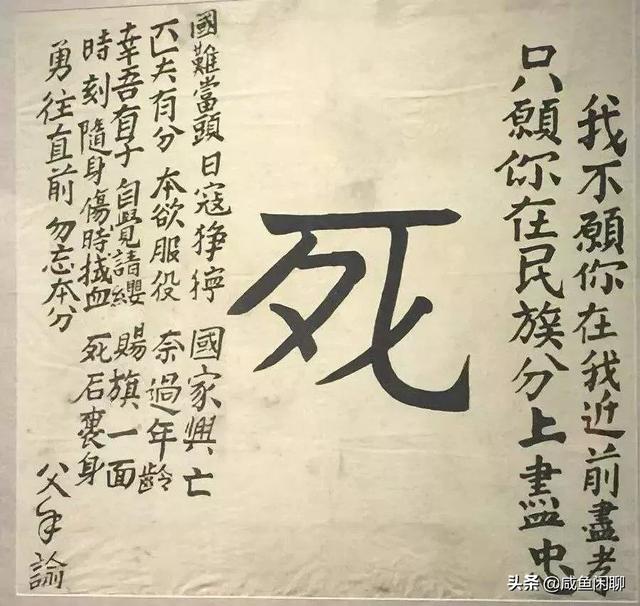 我不願你在我近前盡孝
只願你在民族分上盡忠
死
國難當頭 日寇猙獰 國家興亡
匹夫有分 本欲服役 奈過年齡
幸吾有子 自覺請纓 賜旗一面
時刻隨身 傷時拭血 死后裹身
勇往直前 勿忘本分
父手諭
头条 @咸鱼闲聊